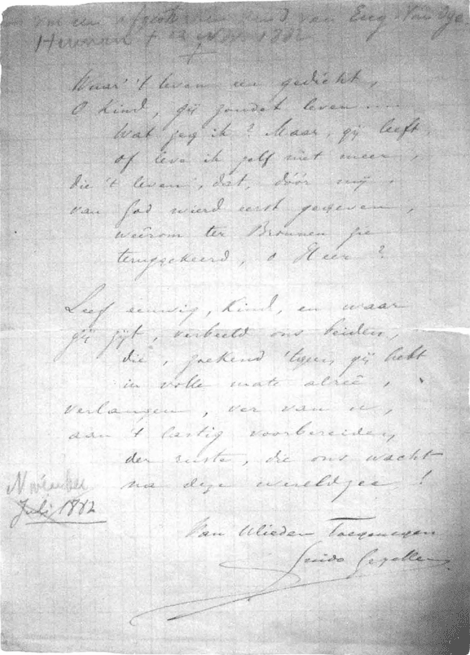 een afgestorven kind van Eug. Van Dye
Herman + 12 Nov 1882
+
Waar 't leven een gedicht,
O Kind, gij zoudet leven...
Wat zeg ik? Maar, gij leeft,
of leve ik zelf niet meer,
die 't leven, dat, dóór mij,
van God wierd eerst gegeven,
weêrom ter Bronnen zie
teruggekeerd, o Heer?
Leef eeuwig, Kind, en waar
gij zijt, verbeeld ons beiden,
die, zoekend 'tgen gij hebt
in volle mate alreê,
verlangen, ver van u,
aan 't lastig voorbereiden
der ruste, die ons wacht
na deze wereldzee!
November
Juli 1882
Van Wieden Toegenegen
Guido Gezelle